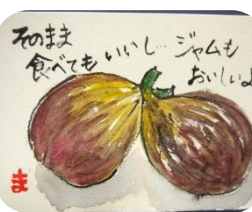 そのまま
食べても いいし… ジャムも
おいしいよ
ま